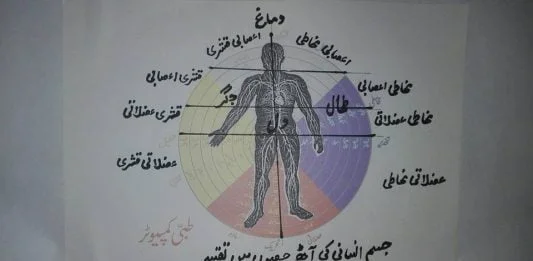 دماغ
اعصابی قشری
اعصابی مخاطی
قشری اعصابی
مخاطی اعصابی
جگر
طحال
قشری عضلاتی
دل
مخاطی عضلاتی
عضلاتی قشری
عضلاتی مخاطی
طبی کمپیوٹر
جسم انسانی کی آٹھ حصوں میں تقسیم